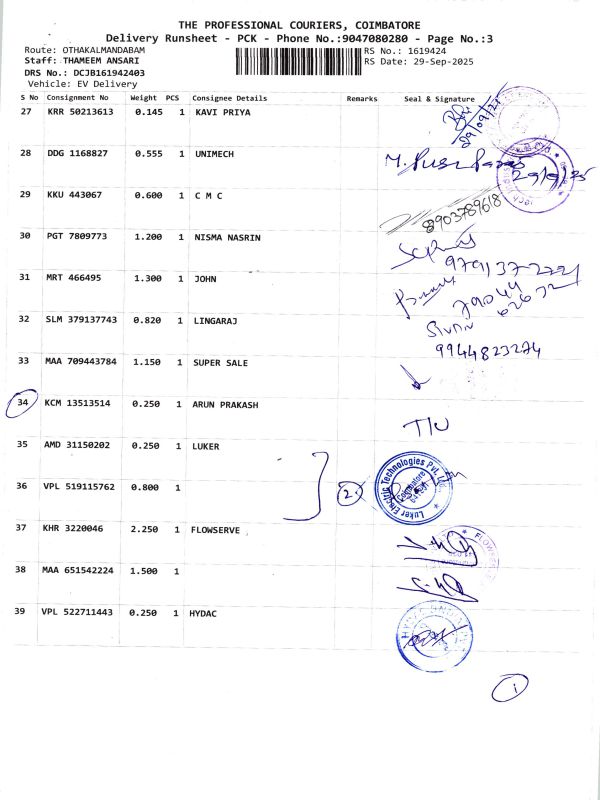 THE PROFESSIONAL COURIERS, COIMBATORE
Delivery Runsheet - PCK - Phone No.:9047080280 - Page No.:3
Route: OTHAKALMANDABAM RS No.: 1619424
Staff: THAMEEM ANSARI RS Date: 29-Sep-2025
DRS No.: DCJB161942403
Vehicle: EV Delivery
S No Consignment No Weight PCS Consignee Details Remarks Seal & Signature
27 KRR 50213613 0.145 1 KAVI PRIYA
28 DDG 1168827 0.555 1 UNIMECH
29/9/25
29 KKU 443067 0.600 1 C M C
8903789618
30 PGT 7809773 1.200 1 NISMA NASRIN
31 MRT 466495 1.300 1 JOHN
32 SLM 379137743 0.820 1 LINGARAJ
9944823274
33 MAA 709443784 1.150 1 SUPER SALE
34 KCM 13513514 0.250 1 ARUN PRAKASH
35 AMD 31150202 0.250 1 LUKER
36 VPL 519115762 0.800 1
2. Luker Electric Technologies Pvt. Ltd. Coimbatore
37 KHR 3220046 2.250 1 FLOWSERVE
38 MAA 651542224 1.500 1
39 VPL 522711443 0.250 1 HYDAC
1